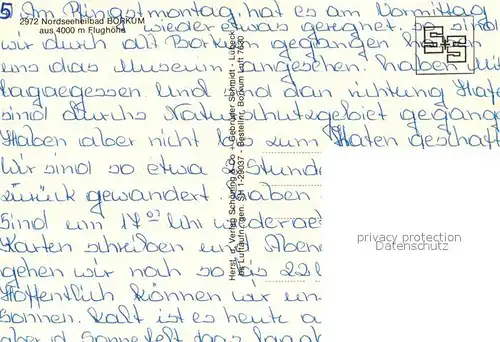 5) Am Pfingstmontag, hat es am Vormittag
2972 Nordseeheilbad BORKUM
aus 4000 m Flughöhe
wieder etwas geregnet so sind
wir durch alt Borkum gegangen haben
uns das Museum angesehen haben Mit
taggegessen und sind dan richtung Hafen
sind durchs Naturschutzgebiet gegangen
Haben aber nicht bis zum Hafen geschaft
Wir sind so etwa 2 Stunden
zurück gewandert. haben
Sind um 17 03 Uhr wieder
Karten schreiben und Abend
gehen wir noch so bis 22
Hoffentlich können wir un
sonnen. Kalt ist es heute
aber id Sonne
Herst. u. Verlag Schöning & Co + Gebrüder Schmidt - Lübeck
Luftaufn. gen. SH 1-29037 - Bestellnr. Borkum Luft
privacy protection
Datenschutz